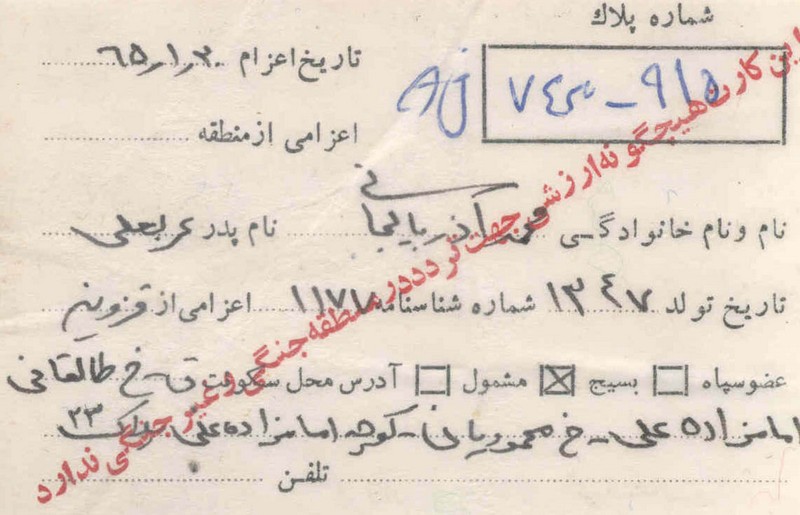 شماره پلاك
۷٤۳ - ۹۱۵ Aj
تاریخ اعزام ۶۵٫۱٫۳۰
اعزامی از منطقه
نام و نام خانوادگی محمد آذربایجانی نام پدر عربعلی
تاریخ تولد ۱۳۴۷ شماره شناسنامه ۱۱۷۷ اعزامی از قزوین
عضو سپاه بسیج ☒ مشمول آدرس محل سکونت ق - خ طالقانی
امامزاده علی - خ - کوچه امامزاده علی پلاک ۲۳
تلفن
این کارت هیچگونه ارزشی جهت تردد در منطقه جنگی و غیر جنگی ندارد